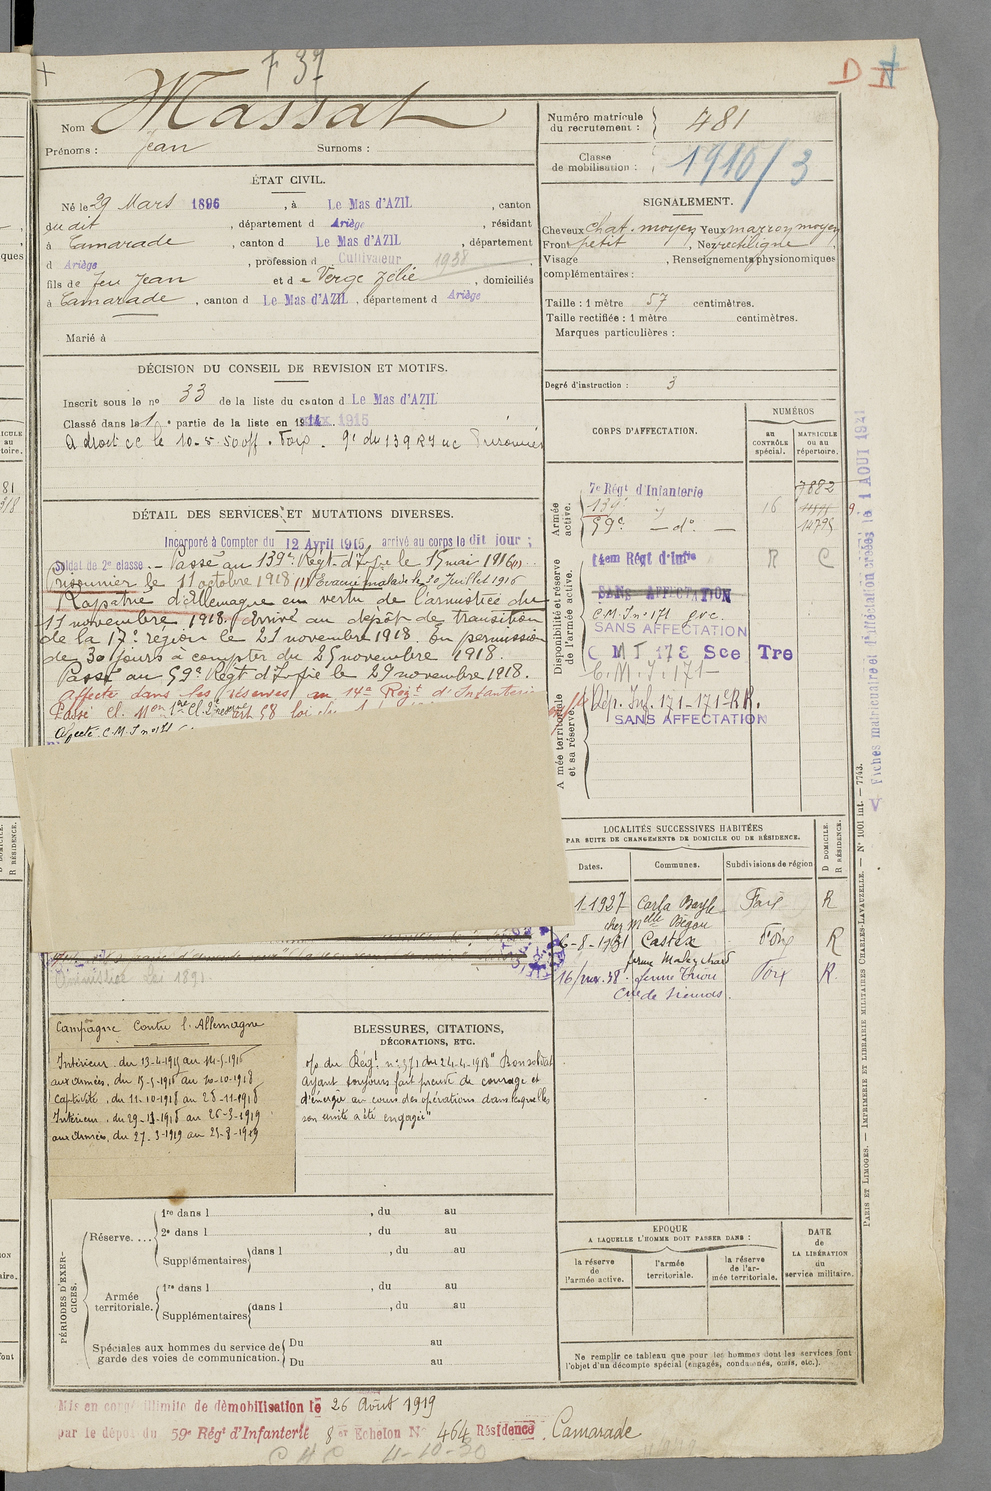 F 37
D
Nom Massat
Prénoms : Jean Surnoms :
Numéro matricule du recrutement : 481
Classe de mobilisation : 1916/3
ÉTAT CIVIL.
Né le 29 Mars 1896, à Le Mas d'AZIL, canton
du dit, département d Ariège, résidant
à Camarade, canton d Le Mas d'AZIL, département
d Ariège, profession d Cultivateur 1938
fils de feu Jean et de Verge Zélie, domiciliés
à Camarade, canton d Le Mas d'AZIL, département d Ariège
Marié à
SIGNALEMENT.
Cheveux chat. moyen Yeux marron moyen
Front petit, Nez rectiligne
Visage , Renseignements physionomiques
complémentaires :
Taille : 1 mètre 57 centimètres.
Taille rectifiée : 1 mètre centimètres.
Marques particulières :
Degré d'instruction : 3
DÉCISION DU CONSEIL DE REVISION ET MOTIFS.
Inscrit sous le nº 33 de la liste du canton d Le Mas d'AZIL
Classé dans la 1e partie de la liste en 1915
DÉTAIL DES SERVICES ET MUTATIONS DIVERSES.
Incorporé à Compter du 12 Avril 1915, arrivé au corps le dit jour ;
Soldat de 2e classe. — Passé au 139e Régt d'Infrie le 15 mai 1916 (1).
Prisonnier le 11 octobre 1918 (1) Evacué malade le 30 Juillet 1916
Rapatrié d'Allemagne en vertu de l'armistice du
11 novembre 1918. Arrivé au dépôt de transition
de la 17e région le 21 novembre 1918. En permission
de 30 jours à compter du 25 novembre 1918.
Passé au 59e Régt d'Infrie le 29 novembre 1918.
Affecté dans les réserves au 14e Régt d'Infanterie
Affecté C.M.I nº 171
Amnistié Loi
CORPS D'AFFECTATION.
NUMÉROS
au CONTRÔLE spécial.
MATRICULE ou au répertoire.
Armée active.
7e Régt d'Infanterie 7882
139e 16
59e — do — 14795
Disponibilité et réserve de l'armée active.
14em Régt d'Infie R C
SANS AFFECTATION
C.M.I n. 171 gvc.
SANS AFFECTATION
C M I 178 Sce Tre
C.M.I. 171
Armée territoriale et sa réserve.
Dép. Inf. 171 - 171e R.R.
SANS AFFECTATION
Fiches matriculaire et d'affectation créées le 1 AOUT 1921
LOCALITÉS SUCCESSIVES HABITÉES
PAR SUITE DE CHANGEMENTS DE DOMICILE OU DE RÉSIDENCE.
D DOMICILE.
R RÉSIDENCE.
Dates. Communes. Subdivisions de région
1-1927 Carla Bayle Foix R
chez Melle Bégou
6-8-1931 Castex Foix R
16/nov. 38 ferme Foix R
Cne de Sieuras.
Campagne Contre l'Allemagne
Intérieur du 13-4-1915 au 14-5-1916
aux armées, du 15-5-1916 au 10-10-1918
Captivité, du 11-10-1918 au 28-11-1918
Intérieur, du 29-11-1918 au 26-3-1919
aux Armées, du 27-3-1919 au 25-8-1919
BLESSURES, CITATIONS,
DÉCORATIONS, ETC.
o/o du Régt nº 371 du 24-4-1918 "Bon soldat
ayant toujours fait preuve de courage et
d'énergie au cours des opérations dans lesquelles
son unité a été engagée"
PÉRIODES D'EXERCICES.
Réserve....
1re dans l , du au
2e dans l , du au
Supplémentaires dans l , du au
Armée territoriale.
1re dans l , du au
Supplémentaires dans l , du au
Spéciales aux hommes du service de
garde des voies de communication.
Du au
Du au
EPOQUE
A LAQUELLE L'HOMME DOIT PASSER DANS :
la réserve de l'armée active.
l'armée territoriale.
la réserve de l'armée territoriale.
DATE de LA LIBÉRATION du service militaire.
Ne remplir ce tableau que pour les hommes dont les services font
l'objet d'un décompte spécial (engagés, condamnés, omis, etc.).
PARIS ET LIMOGES. — IMPRIMERIE ET LIBRAIRIE MILITAIRES CHARLES-LAVAUZELLE. — Nº 1001 int. — 7743.
Mis en congé illimité de démobilisation le 26 Août 1919
par le dépôt du 59e Régt d'Infanterie 8e Echelon Nº 464 Résidence Camarade